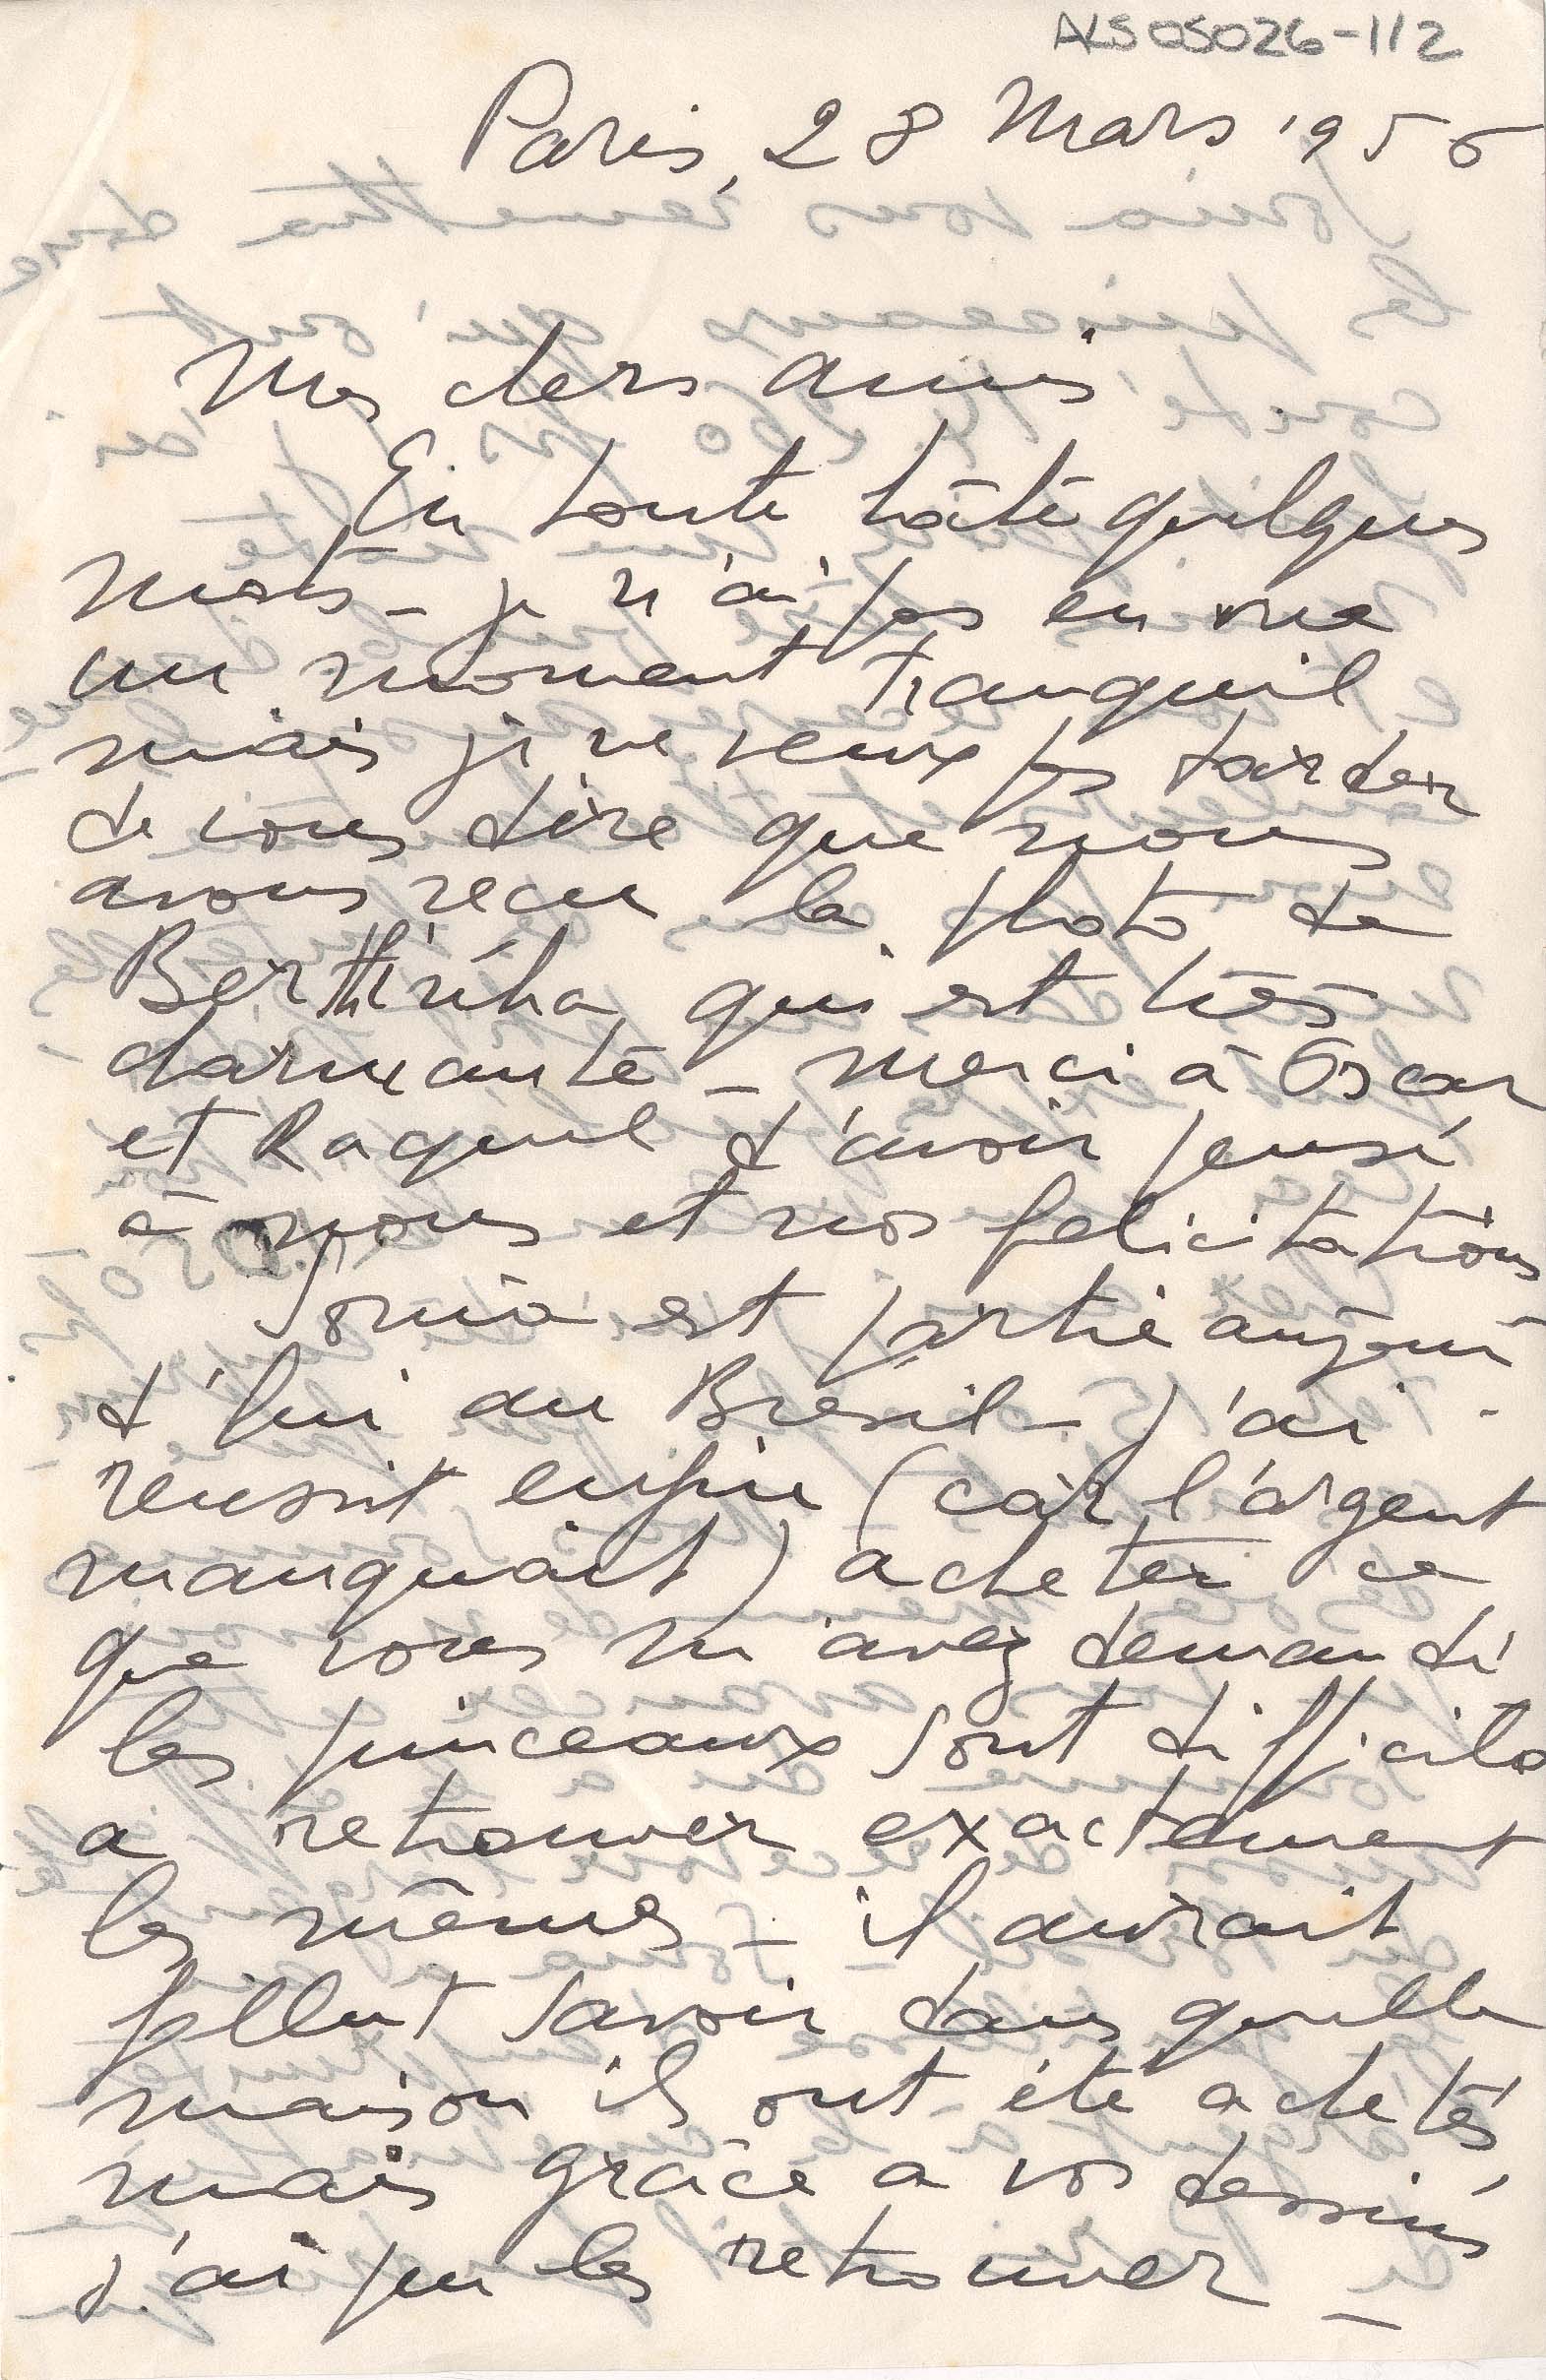 ALS 05026-1/2
Paris, 28 Mars 1956
Mes chers amis
En toute hâte quelques
mots - je n'ai pas en vue
un moment tranquil
mais je ne veux pas tarder
de vous dire que nous
avons reçu la photo de
Berthinha, qui est très
charmante - merci à Oscar
et Raquel d'avoir pensé
à nous et nos felicitations
Sonia est partie aujour
d'hui au Bresil - J'ai
reussit enfin (car l'argent
manquait) acheter ce
que vous m'avez demandé
les pinceaux sont difficils
a retrouver exactement
les mêmes - il aurait
fallut savoir dans quelle
maison ils ont été achetés,
mais grâce a vos dessins
j'ai pu les retrouver -